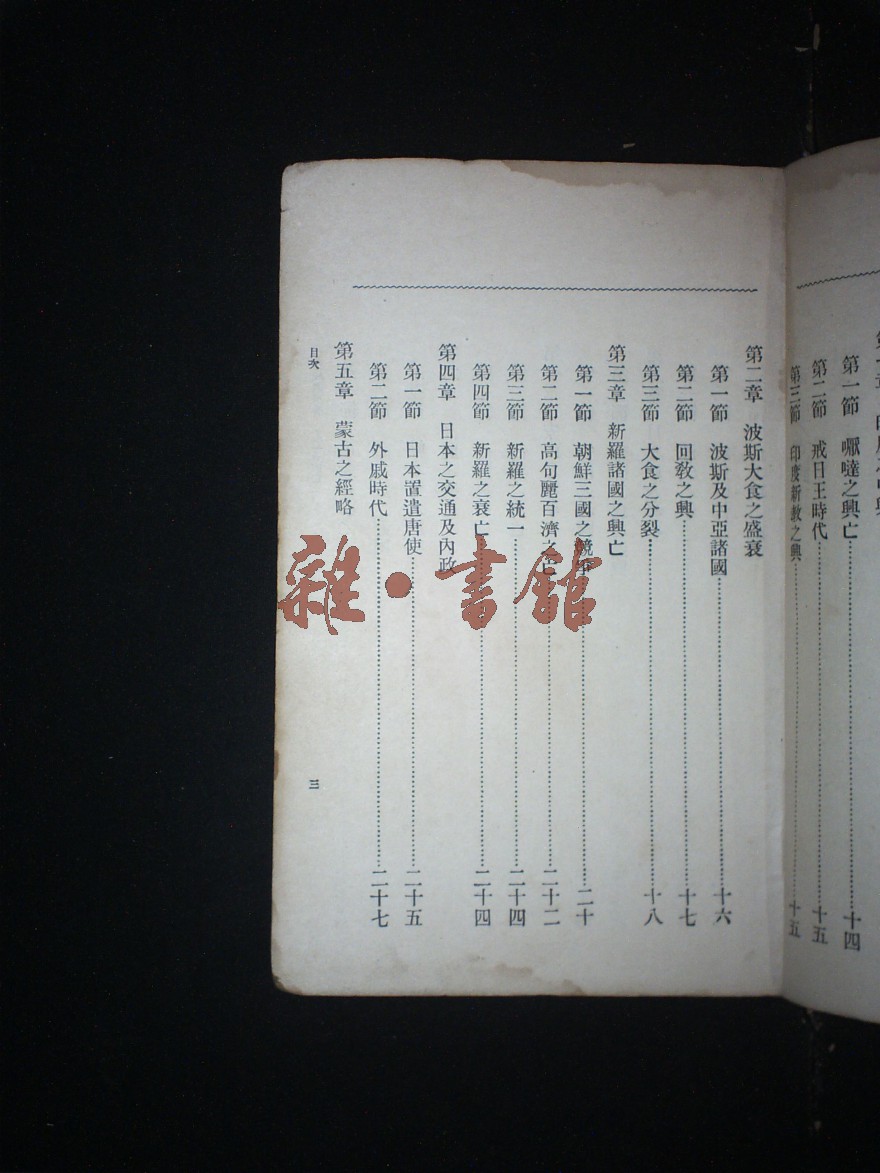 第一節 嚈噠之興亡 十四
第二節 戒日王時代 十五
第三節 印度新教之興 十五
第二章 波斯大食之盛衰
第一節 波斯及中亞諸國 十六
第二節 回教之興 十七
第三節 大食之分裂 十八
第三章 新羅諸國之興亡
第一節 朝鮮三國之競爭 二十
第二節 高句麗百濟之亡 二十二
第三節 新羅之統一 二十四
第四節 新羅之衰亡 二十四
第四章 日本之交通及內政
第一節 日本置遣唐使 二十五
第二節 外戚時代 二十七
第五章 蒙古之經略
目次
三
雜·書館